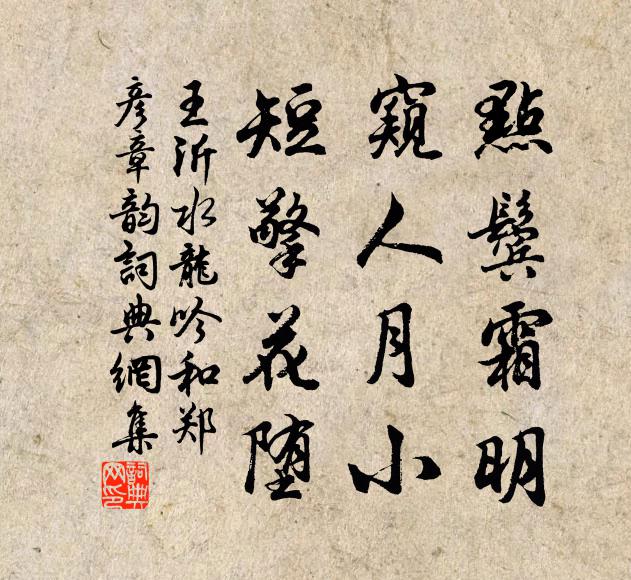 點鬢霜明
窺人月小
短擎花墮
王沂水龍吟和郑
彥章韵詞典網集
詞典网印